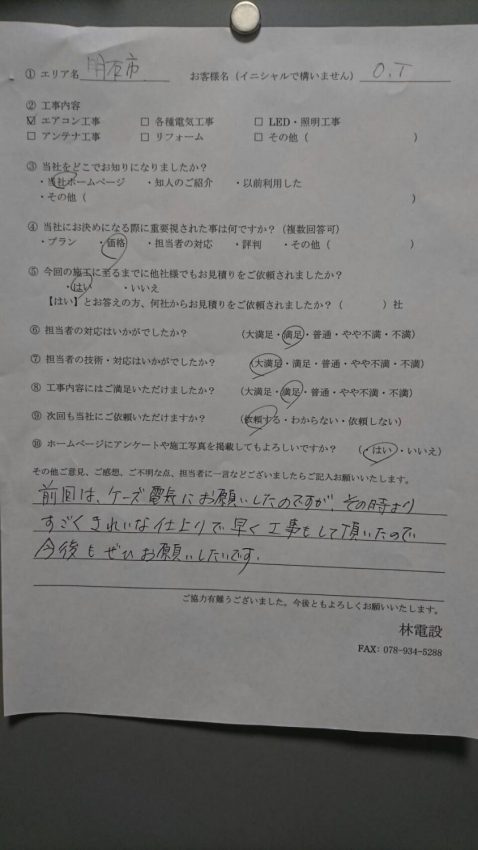 ① エリア名 明石市 お客様名（イニシャルで構いません） O.T
② 工事内容
☑ エアコン工事 □ 各種電気工事 □ LED・照明工事
□ アンテナ工事 □ リフォーム □ その他（ ）
③ 当社をどこでお知りになりましたか？
・当社ホームページ ・知人のご紹介 ・以前利用した
・その他（ ）
④ 当社にお決めになる際に重要視された事は何ですか？（複数回答可）
・プラン ・価格 ・担当者の対応 ・評判 ・その他（ ）
⑤ 今回の施工に至るまでに他社様でもお見積りをご依頼されましたか？
・はい ・いいえ
【はい】とお答えの方、何社からお見積りをご依頼されましたか？（ ）社
⑥ 担当者の対応はいかがでしたか？ （大満足・満足・普通・やや不満・不満）
⑦ 担当者の技術・対応はいかがでしたか？ （大満足・満足・普通・やや不満・不満）
⑧ 工事内容にはご満足いただけましたか？ （大満足・満足・普通・やや不満・不満）
⑨ 次回も当社にご依頼いただけますか？ （依頼する・わからない・依頼しない）
⑩ ホームページにアンケートや施工写真を掲載してもよろしいですか？ （・はい・いいえ）
その他ご意見、ご感想、ご不明な点、担当者に一言などございましたらご記入お願いいたします。
前回は、ケーズ電気にお願いしたのですが、その時より
すごくきれいな仕上りで早く工事もして頂いたので
今後もぜひお願いしたいです。
ご協力有難うございました。今後ともよろしくお願いいたします。
林電設
FAX: 078-934-5288